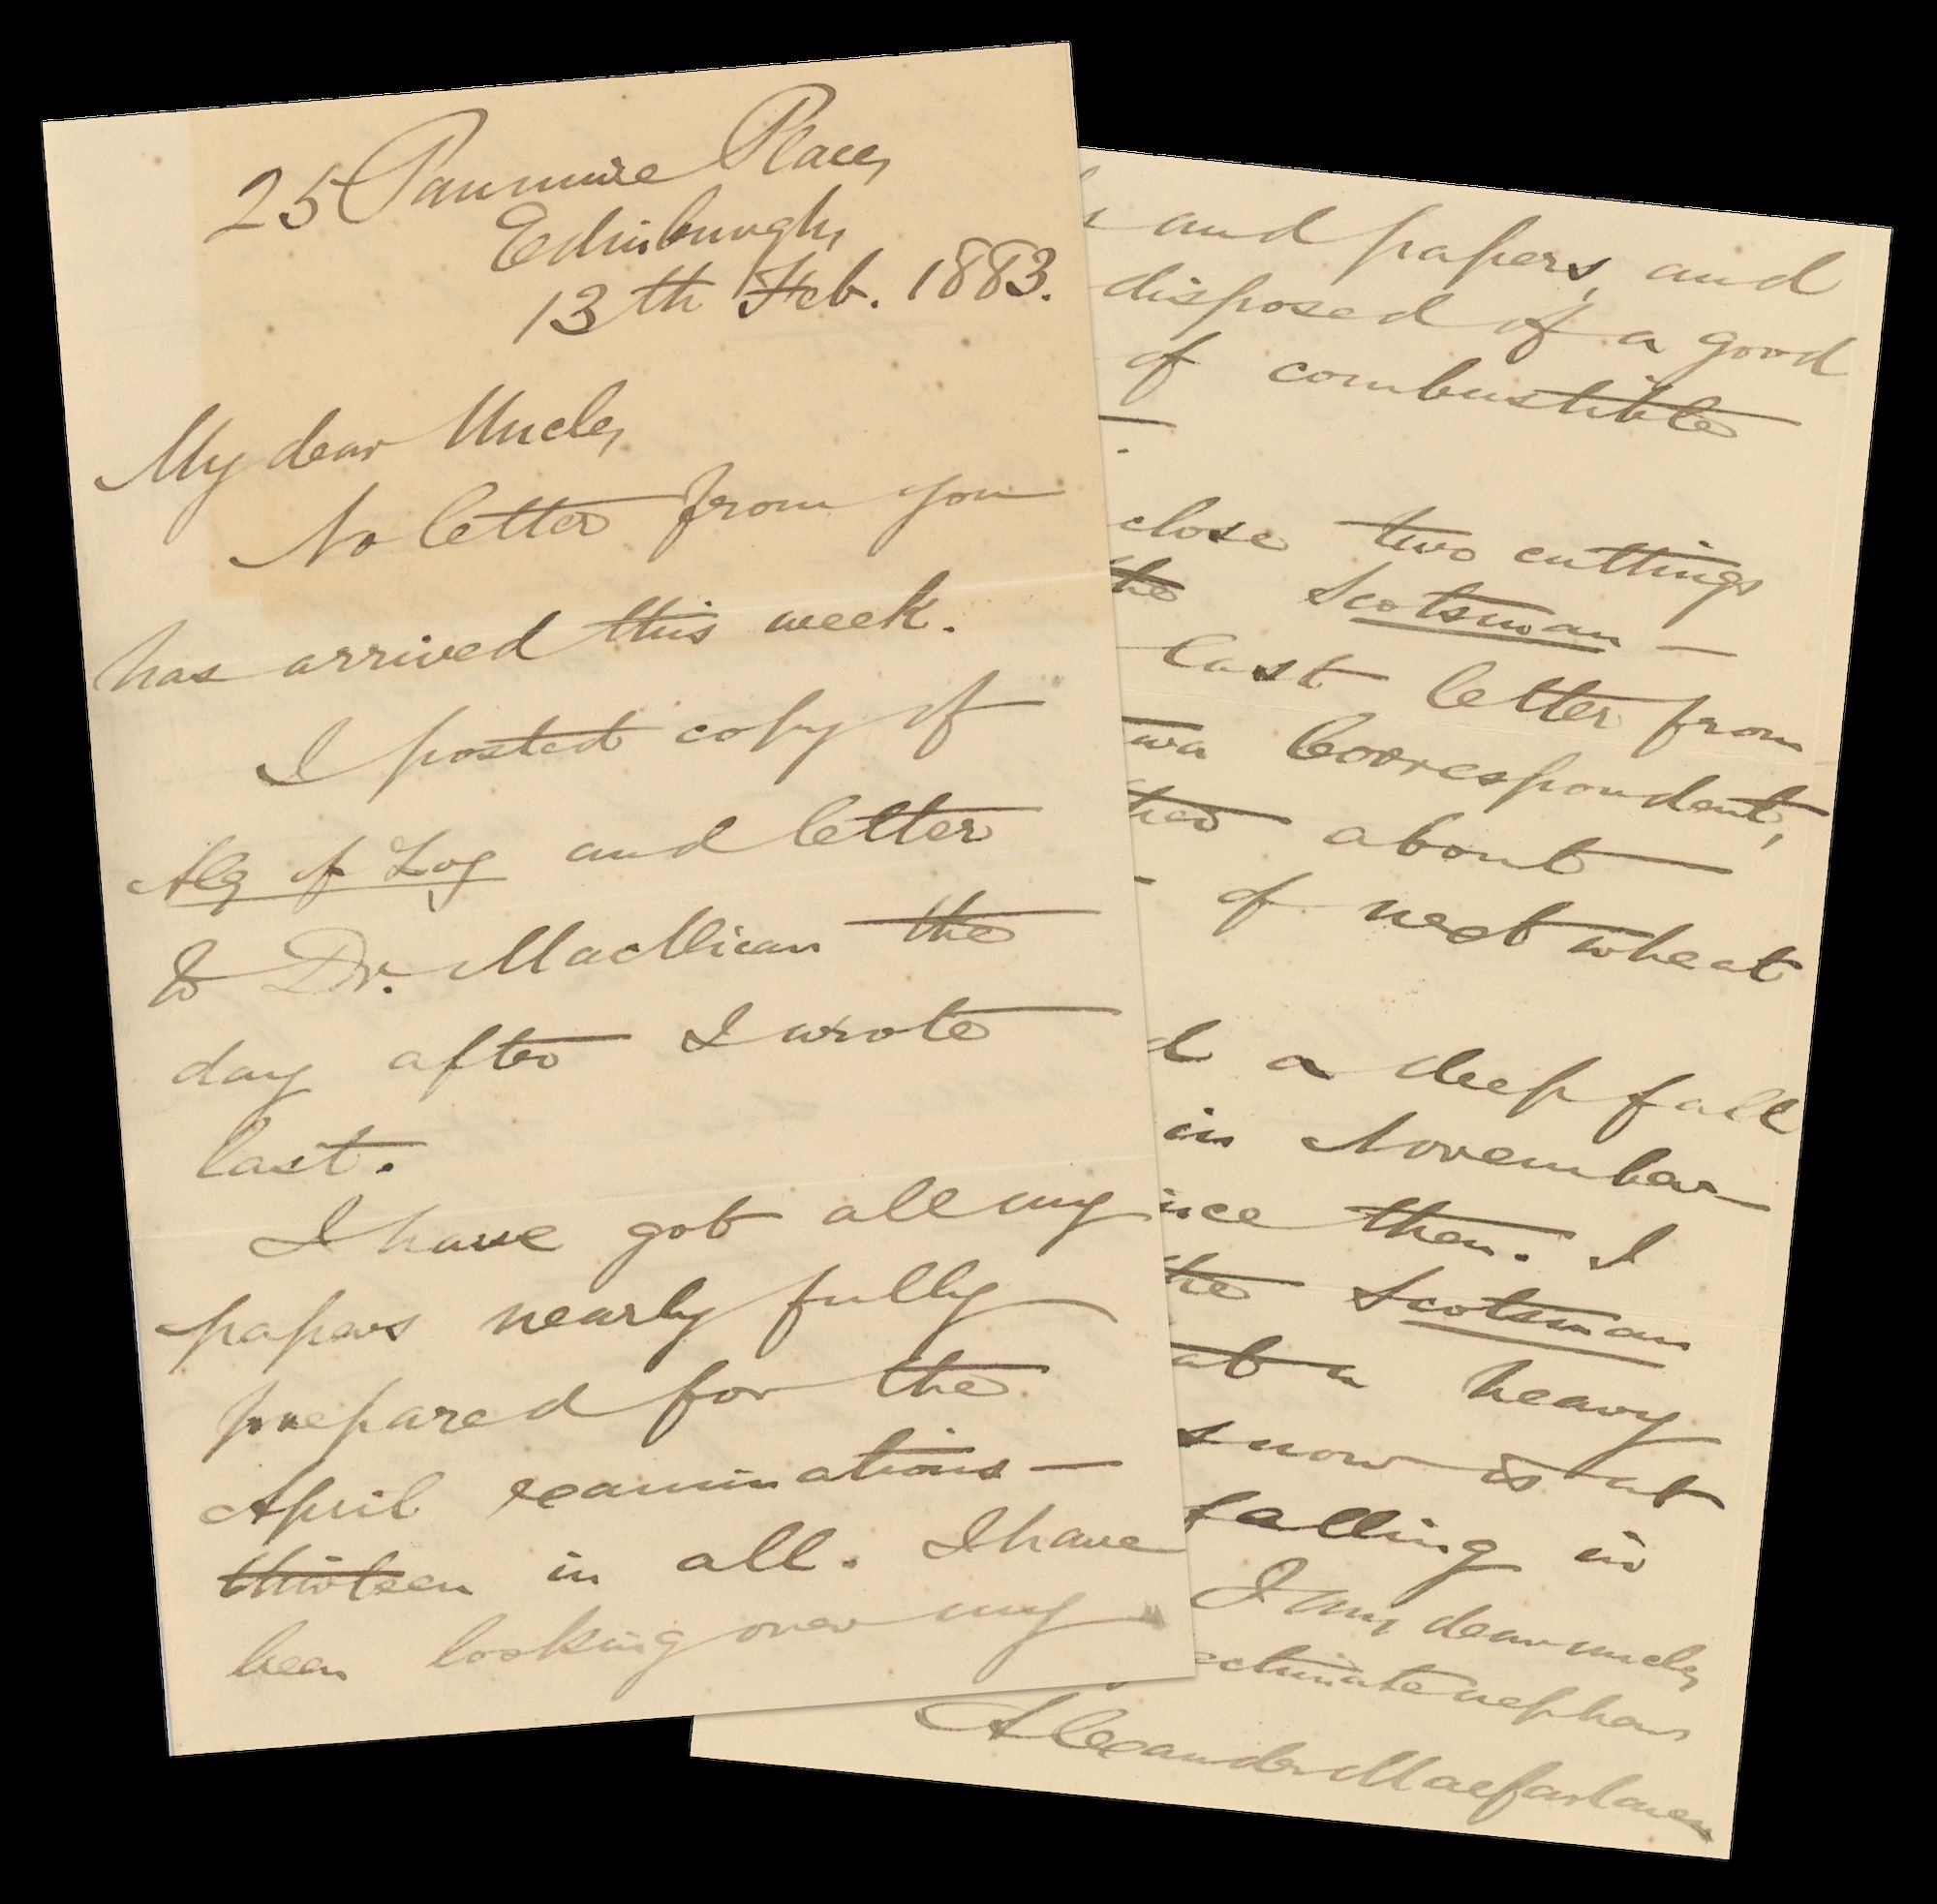 25 Panmure Place,
Edinburgh,
13th Feb. 1883.
My dear Uncle,
No letter from you
has arrived this week.
I posted copy of
Alg of Log and letter
to Dr. MacVicar the
day after I wrote
last.
I have got all my
papers nearly fully
prepared for the
April examinations —
thirteen in all. I have
been looking over my
and papers, and
disposed of a good
of combustible
close two cuttings
the Scotsman —
last letter from
Correspondent,
about —
of next wheat
d a deep fall
in November —
ince then. I
the Scotsman
at a heavy
snow is at
falling in
I am, dear uncle,
ectionate nephew
Alexander Macfarlane